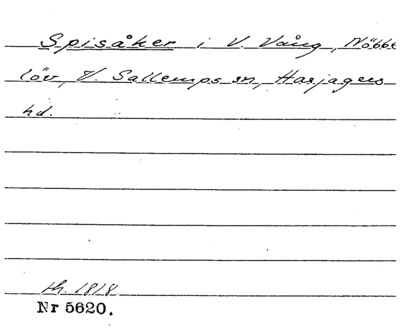 Spisåker i V. Vång, Nöbbe
löv, V. Sallerups sn, Harjagers
hd.
sh. 1818.
Nr 5620.